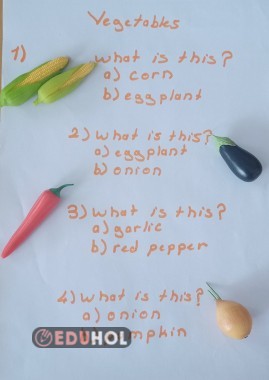 Vegetables
1) what is this?
a) corn
b) eggplant
2) what is this?
a) eggplant
b) onion
3) what is this?
a) garlic
b) red pepper
4) what is this?
a) onion
mpkin
EDUHOL